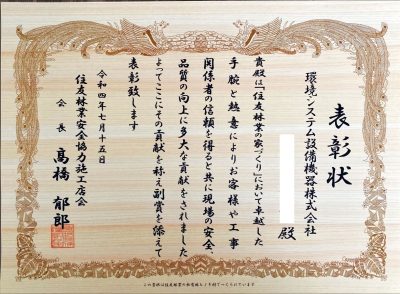 表彰状
環境システム設備機器株式会社
殿
貴殿は「住友林業の家づくり」において卓越した
手腕と熱意によりお客様や工事
関係者の信頼を得ると共に現場の安全、
品質の向上に多大な貢献をされました
よってここにその貢献を称え副賞を添えて
表彰致します
令和四年七月十五日
住友林業安全協力施工店会
会長 高橋郁郎